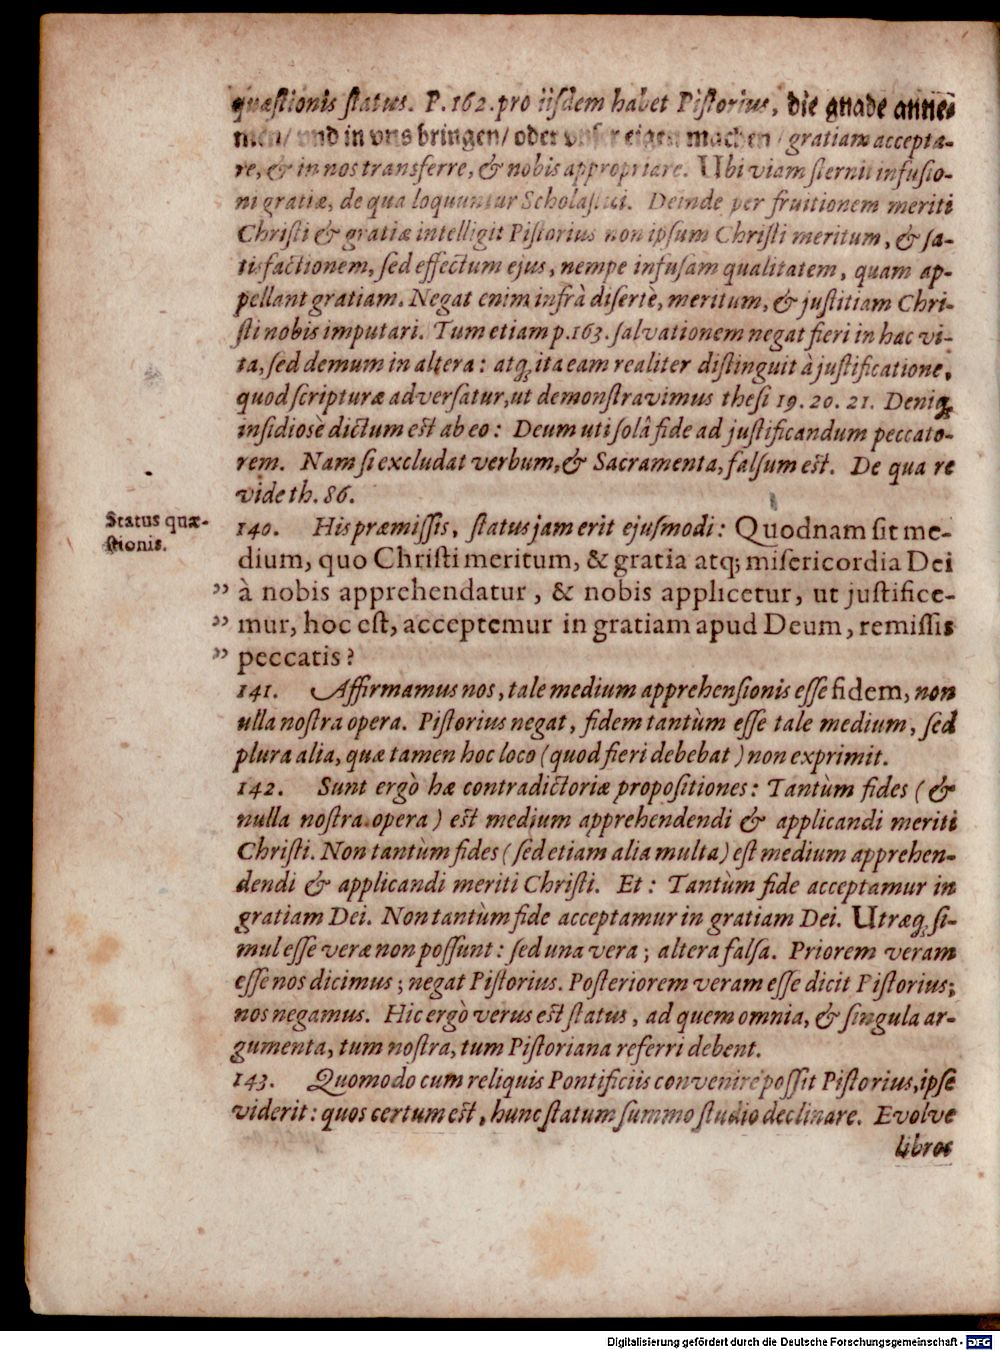 quæstionis status. P. 162. pro iisdem habet Pistorius, die gnade anneh
men/ vnd in vns bringen/ oder vnser eigen machen / gratiam accepta-
re, & in nos transferre, & nobis appropriare. Ubi viam sternit infusio-
ni gratiæ, de qua loquuntur Scholastici. Deinde per fruitionem meriti
Christi & gratiæ intelligit Pistorius non ipsum Christi meritum, & sa-
tisfactionem, sed effectum ejus, nempe infusam qualitatem, quam ap-
pellant gratiam. Negat enim infrà disertè, meritum, & justitiam Chri-
sti nobis imputari. Tum etiam p. 163. salvationem negat fieri in hac vi-
ta, sed demum in altera: atq; ita eam realiter distinguit à justificatione,
quod scripturæ adversatur, ut demonstravimus thesi 19. 20. 21. Deniq;
insidiosè dictum est ab eo: Deum uti solâ fide ad justificandum peccato-
rem. Nam si excludat verbum, & Sacramenta, falsum est. De qua re
vide th. 86.
Status quæ-
stionis.
140. His præmissis, status jam erit ejusmodi: Quodnam sit me-
dium, quo Christi meritum, & gratia atq; misericordia Dei
” à nobis apprehendatur, & nobis applicetur, ut justifice-
” mur, hoc est, acceptemur in gratiam apud Deum, remissis
” peccatis?
141. Affirmamus nos, tale medium apprehensionis esse fidem, non
ulla nostra opera. Pistorius negat, fidem tantùm esse tale medium, sed
plura alia, quæ tamen hoc loco (quod fieri debebat) non exprimit.
142. Sunt ergò hæ contradictoriæ propositiones: Tantùm fides (&
nulla nostra opera) est medium apprehendendi & applicandi meriti
Christi. Non tantùm fides (sed etiam alia multa) est medium apprehen-
dendi & applicandi meriti Christi. Et: Tantùm fide acceptamur in
gratiam Dei. Non tantùm fide acceptamur in gratiam Dei. Utræq; si-
mul esse veræ non possunt: sed una vera; altera falsa. Priorem veram
esse nos dicimus; negat Pistorius. Posteriorem veram esse dicit Pistorius;
nos negamus. Hic ergò verus est status, ad quem omnia, & singula ar-
gumenta, tum nostra, tum Pistoriana referri debent.
143. Quomodo cum reliquis Pontificiis convenire possit Pistorius, ipse
viderit: quos certum est, hunc statum summo studio declinare. Evolve
libros
Digitalisierung gefördert durch die Deutsche Forschungsgemeinschaft - DFG